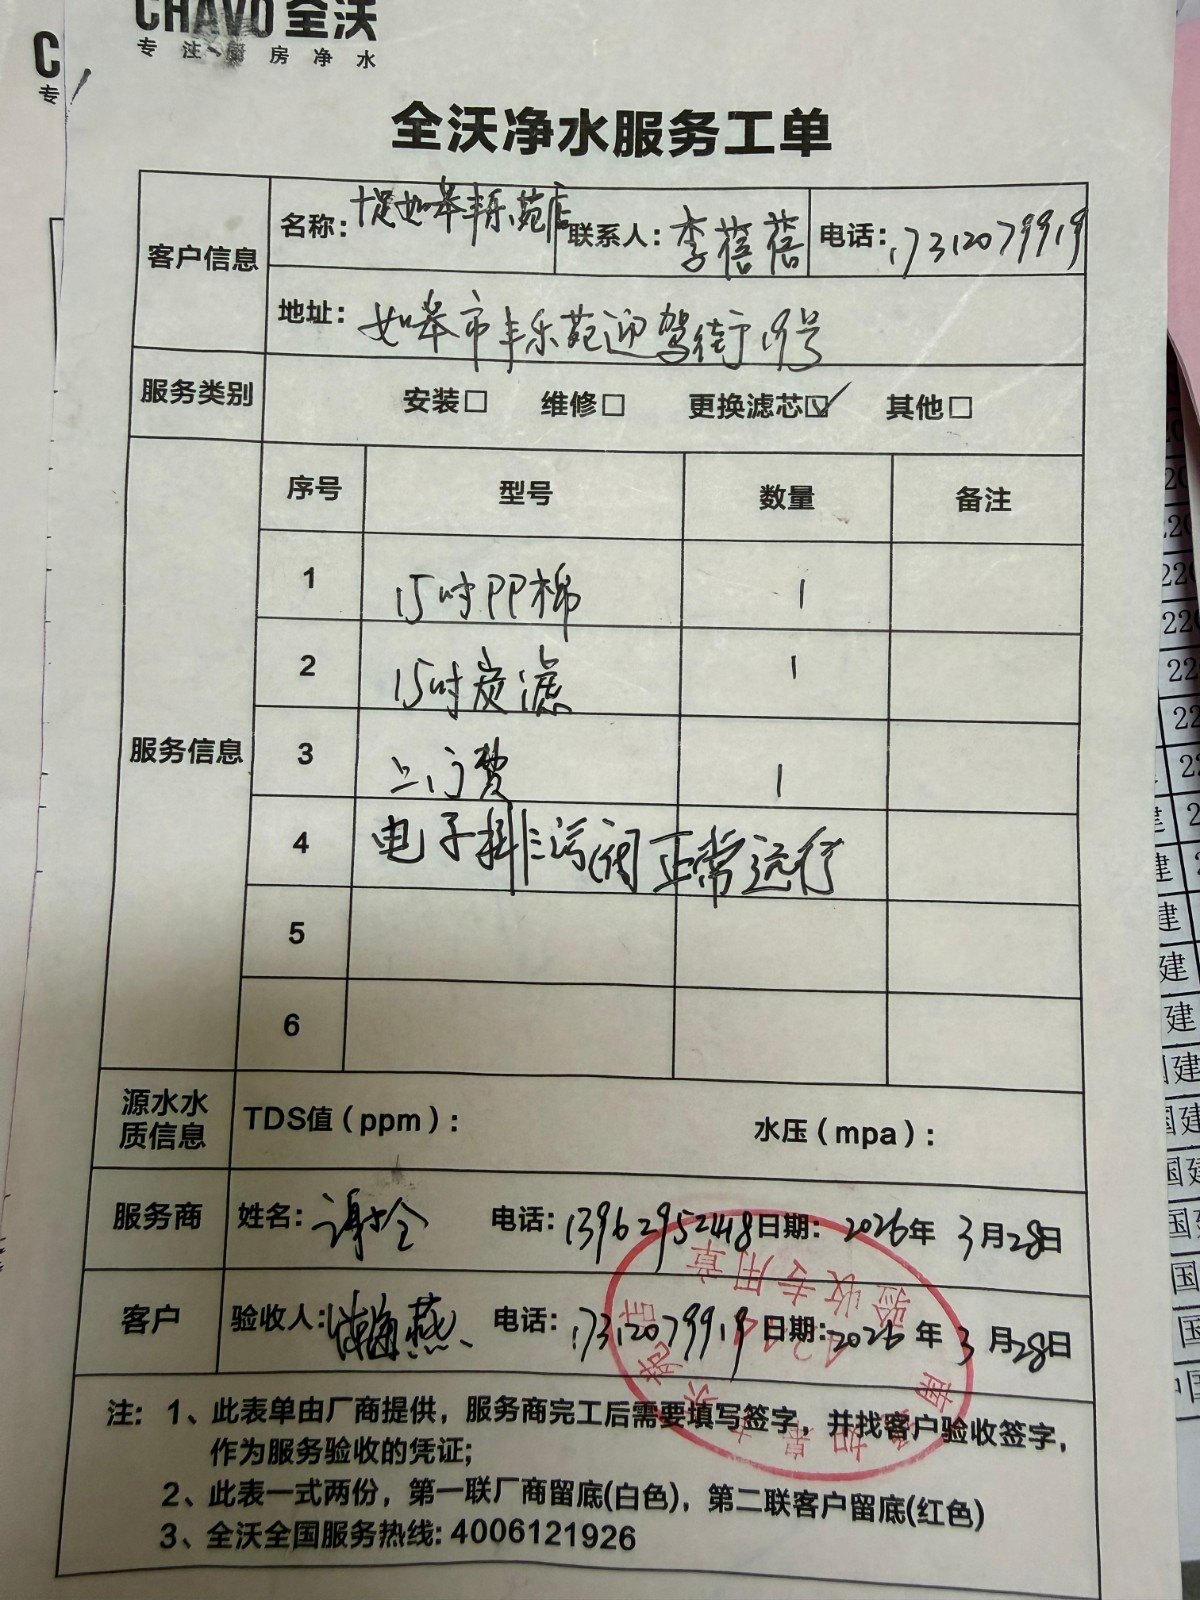 CHAVO 全沃
专注厨房净水
全沃净水服务工单
客户信息
名称：捷如皋丰乐苑店 联系人：李蓓蓓 电话：17312079919
地址：如皋市丰乐苑迎驾街19号
服务类别 安装□ 维修□ 更换滤芯☑ 其他□
服务信息
序号 型号 数量 备注
1 15吋PP棉 1
2 15吋炭滤 1
3 上门费 1
4 电子排污阀正常运行
5
6
源水水质信息 TDS值（ppm）： 水压（mpa）：
服务商 姓名：谢拴 电话：13962952448 日期：2026年3月28日
客户 验收人： 燕 电话：17312079919 日期：2026年3月28日
验收专用章
注：1、此表单由厂商提供，服务商完工后需要填写签字，并找客户验收签字，
作为服务验收的凭证；
2、此表一式两份，第一联厂商留底(白色)，第二联客户留底(红色)
3、全沃全国服务热线：4006121926